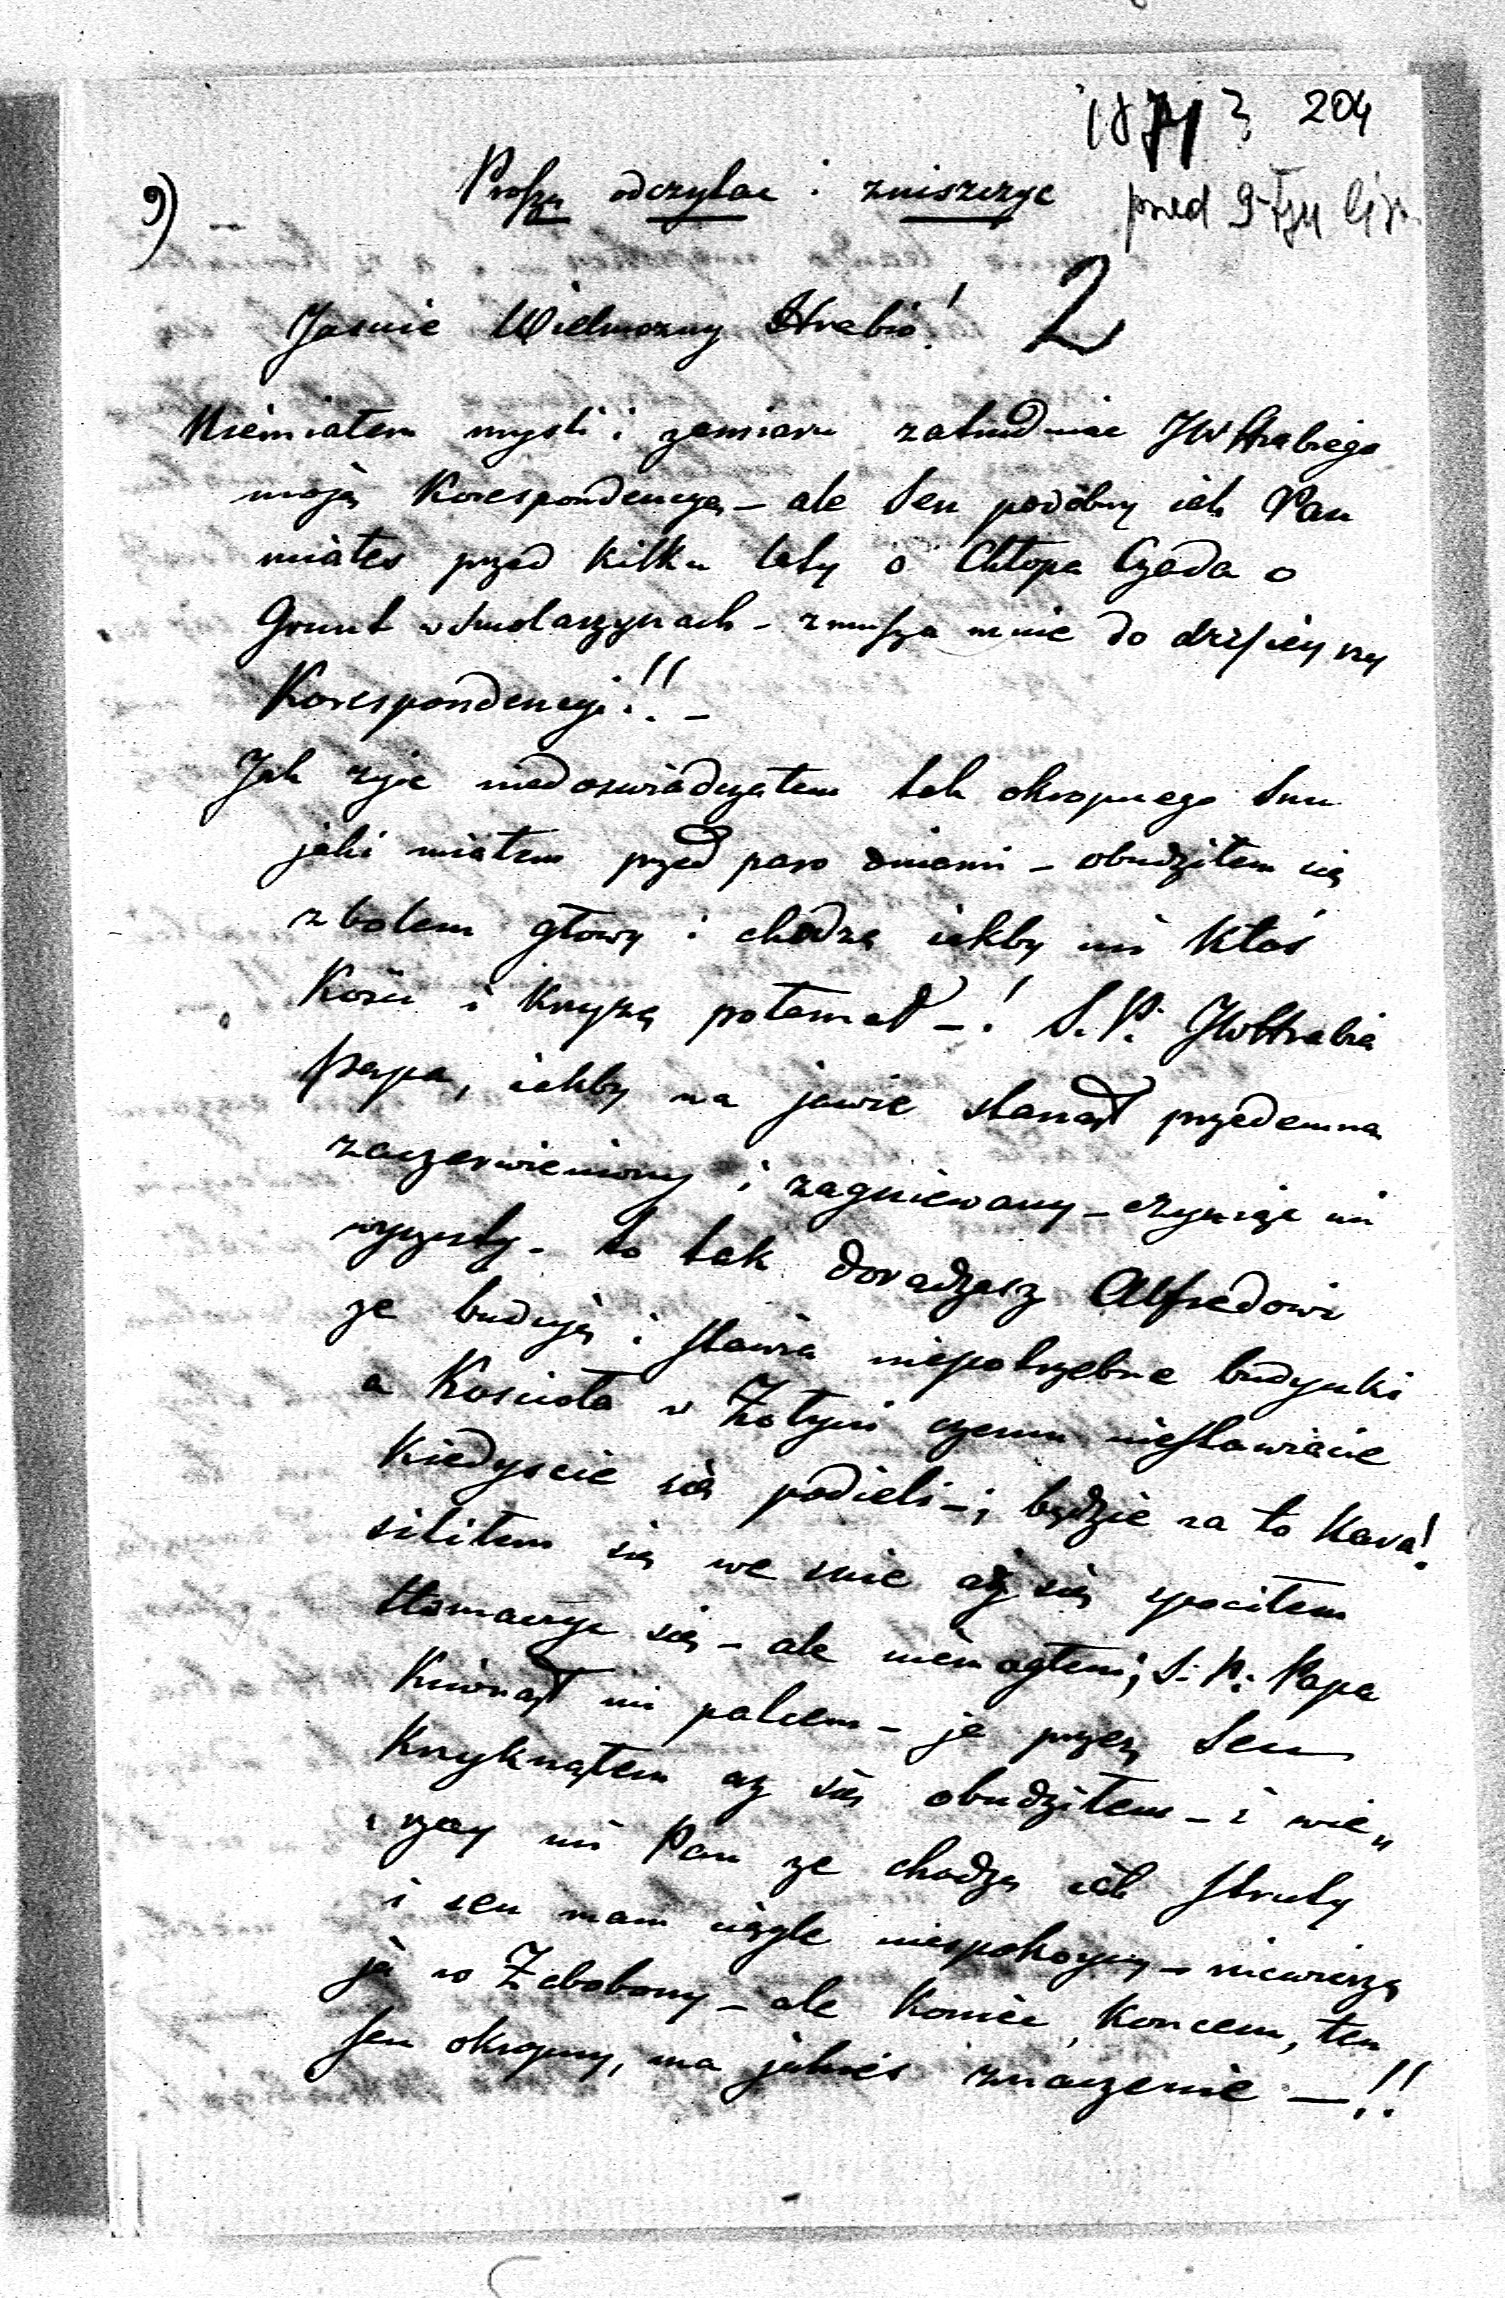 1871? 204
9) – Proszę odczytac i zniszczyc
przed 9-tym
2
Jasnie Wielmozny Hrabio!
Niemiałem mysli i zamiaru zatrudniac JWHrabiego
moją Korespondencyą – ale Sen podobny iak Pan
miałes przed kilku laty o Chłopa Czada o
Grunt w Smolarzynach – zmusza mnie do dzisieyszy
Korespondencyi!! –
Jak zyie niedoswiadczałem tak okropnego Snu
jaki miałem przed paro dniami – obudziłem się
z bolem głowy i chodzę iakby mi Ktoś
Kości i Krzyza połamał – ! S. P. JWHrabia
papa, iakby na jawie stanął przedemną
zaczerwieniony i zagniewany – czyniąc mi
wyrzuty – to tak doradzasz Alfredowi
ze budują i stawia niepotrzebne budynki
a Koscioła w Żołyni czemu niestawiacie
Kiedyscie się podieli – ; będzie za to Kara!
siliłem się we snie aż się spociłem
tłomaczyc się – ale niemogłem; S. P. Papa
Kiwnął mi palcem – ja przez Sen
Krzyknąłem az się obudziłem – i wie„
rzay mi Pan ze chodzę iak struty
i sen mam ciągle niespokoyny – niewierzę
ja w Zabobony – ale Koniec Koncem, ten
Sen okropny, ma jakieś znaczenie – !!